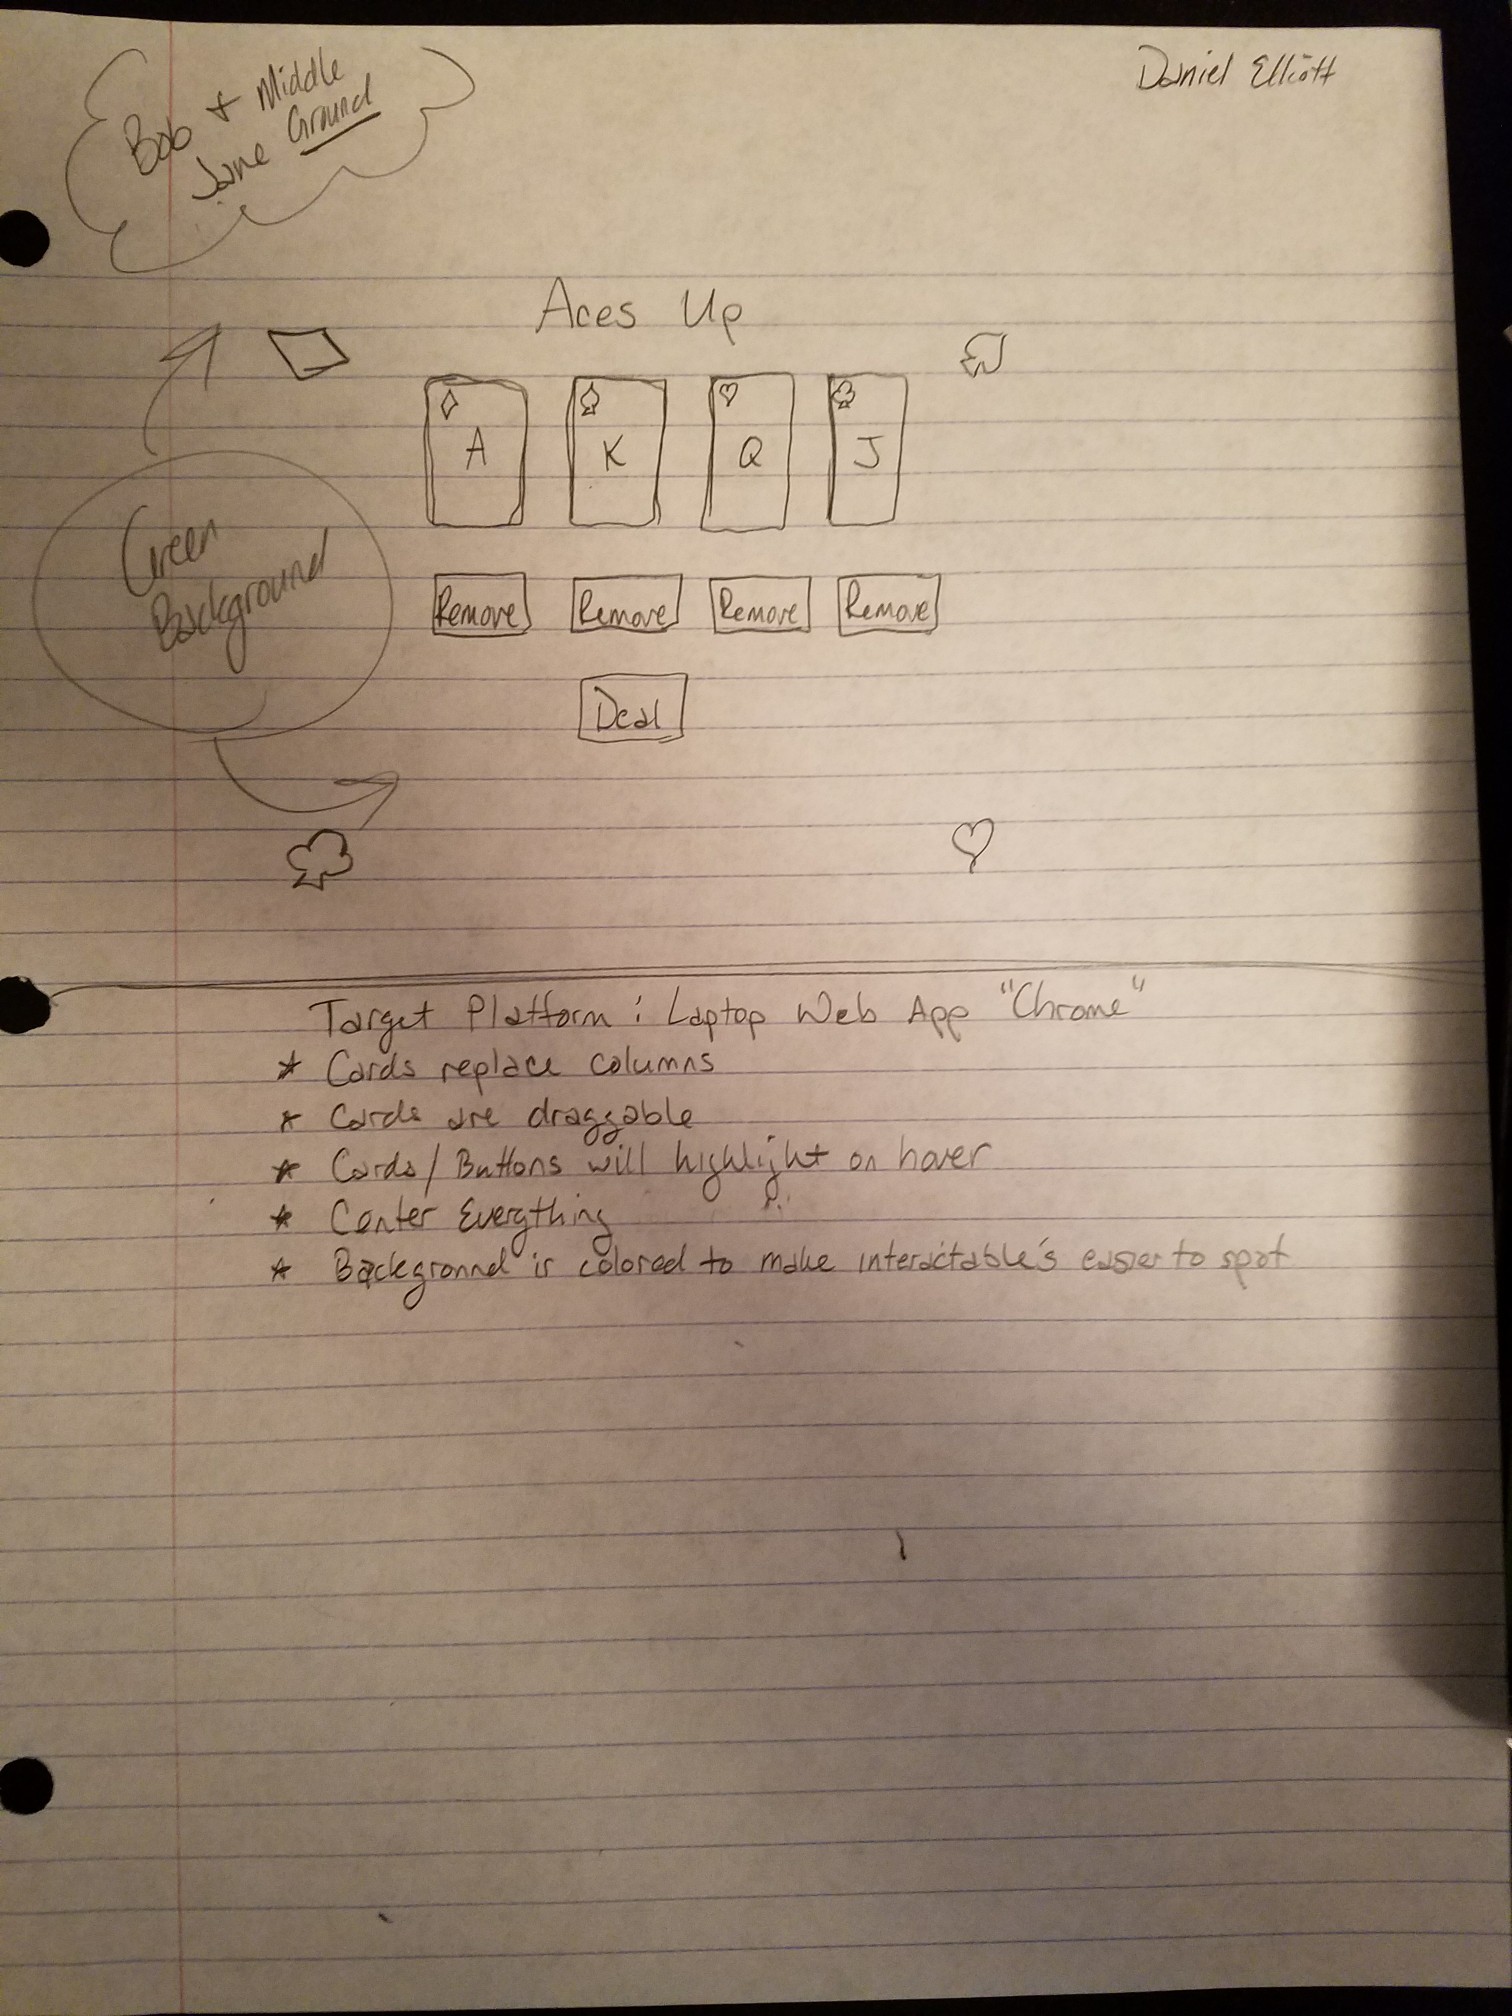 Bob + Middle
Jane Ground
Daniel Elliott
Aces Up
A K Q J
Green
Background
Remove Remove Remove Remove
Deal
Target Platform : Laptop Web App "Chrome"
* Cards replace columns
* Cards are draggable
* Cards/Buttons will highlight on hover
* Center Everything
* Background is colored to make interactable's easier to spot